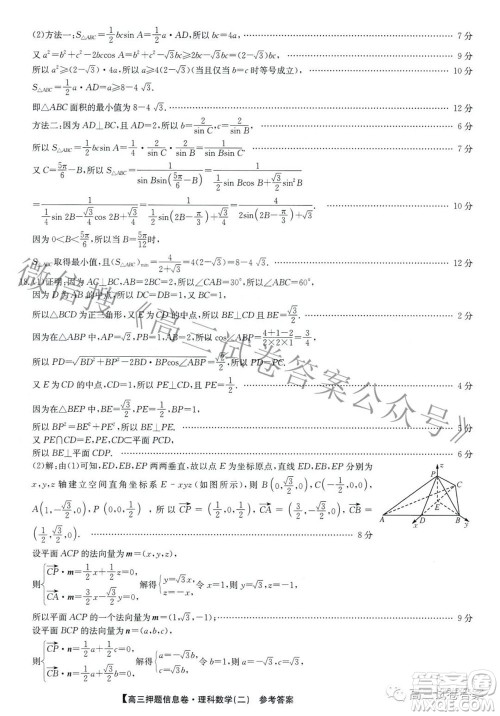 (2)方法一:S△ABC=1/2 bcsin A=1/2 a·AD,所以 bc=4a, 7分
又 a²=b²+c²-2bccos A=b²+c²-√3bc≥2bc-√3bc, 9分
所以 a²≥(2-√3)·4a,所以 a≥4(2-√3)(当且仅当 b=c 时等号成立), 10分
S△ABC=1/2 a·AD=a≥8-4√3.
即△ABC 面积的最小值为 8-4√3. 12分
方法二:因为 AD⊥BC,且 AD=2,所以 b=2/sin C,c=2/sin B. 6分
所以 S△ABC=1/2 bcsin A=1/2·2/sin C·2/sin B·1/2=1/(sin Bsin C), 7分
又 C=5π/6-B,所以 S△ABC=1/(sin Bsin(5π/6-B))=1/(1/2 sin Bcos B+√3/2 sin²B)
=1/(1/4 sin 2B-√3/4 cos 2B+√3/4)=1/(1/2 sin(2B-π/3)+√3/4), 10分
因为 0<B<5π/6,所以当 B=5π/12 时,
S△ABC 取得最小值,且(S△ABC)min=4/(2+√3)=4(2-√3)=8-4√3. 12分
18.(1)证明:因为 AC⊥BC,AB=2,BC=1,所以∠CAB=30°,所以∠CBA=60°,
因为 D 为 AB 的中点,所以 BD=1,
所以△BCD 为等边三角形,因为 E 为 CD 的中点,所以 BE⊥CD.
因为在△ABP 中,AP=√2,PB=1,所以 cos∠ABP=(4+1-2)/(2×2×1)=3/4,
所以 PD=√(BD²+BP²-2BD·BPcos∠ABP)=√2/2,
又 E 为 CD 的中点,所以 PE⊥CD,且 PE=1/2. 4分
因为在△BPE 中,BE=√3/2,PE=1/2,BP=1,
所以 BP²=BE²+PE²,所以 BE⊥PE. 5分
又 PE∩CD=E,PE,CD⊂平面 PCD,
所以 BE⊥平面 PCD. 6分
(2)解:由(1)可知,ED,EB,EP 两两垂直,故以 E 为坐标原点,直线 ED,EB,EP 分别为
x,y,z 轴建立空间直角坐标系 E-xyz(如图所示),则 B(0,√3/2,0),C(-1/2,0,0),
A(1,-√3/2,0),P(0,0,1/2),所以 CP=(1/2,0,1/2),CA=(3/2,-√3/2,0),CB=
(1/2,√3/2,0). 8分
设平面 ACP 的法向量为 m=(x,y,z),
则{CP·m=1/2 x+1/2 z=0, CA·m=3/2 x-√3/2 y=0, 解得{y=√3x, z=-x, 令 x=1,则 y=√3,z=-1,
所以平面 ACP 的一个法向量为 m=(1,√3,-1). 9分
设平面 BCP 的法向量为
【高三押题信息卷·理科数学(二) 参考答案】
P
C
E
A
D
B
x
y
z
微信搜《高三试卷答案公众号》
高三试卷答案